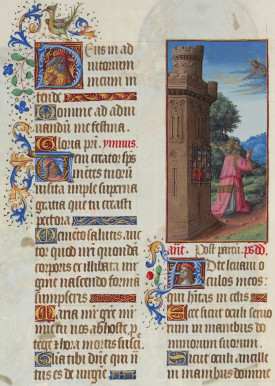 Deus in ad
iutorium
meum in
tende
Domine ad adiu
uandū me festina
Gloria pri ymnus.
Veni creator sps
mētes tuorū
uisita imple superna
gratia que tu creasti
pectora
Memēto salutis auc
tor quod nri quondā
corporis ex illibata uir
gine nascendo formā
sumpseris
Maria mr grē mr
mie tu nos ab hoste p
tege et hora mortis susci
Gloria tibi dn̄e qui n
tus es de uirgie
ant. Post partū. ps. dd.
Ad te leuaui o
culos meos:
qui hitas in celis
Ecce sicut oculi seruo
rum in manibus do
minorum suorum.
Sicut oculi ancille
in manibus domine